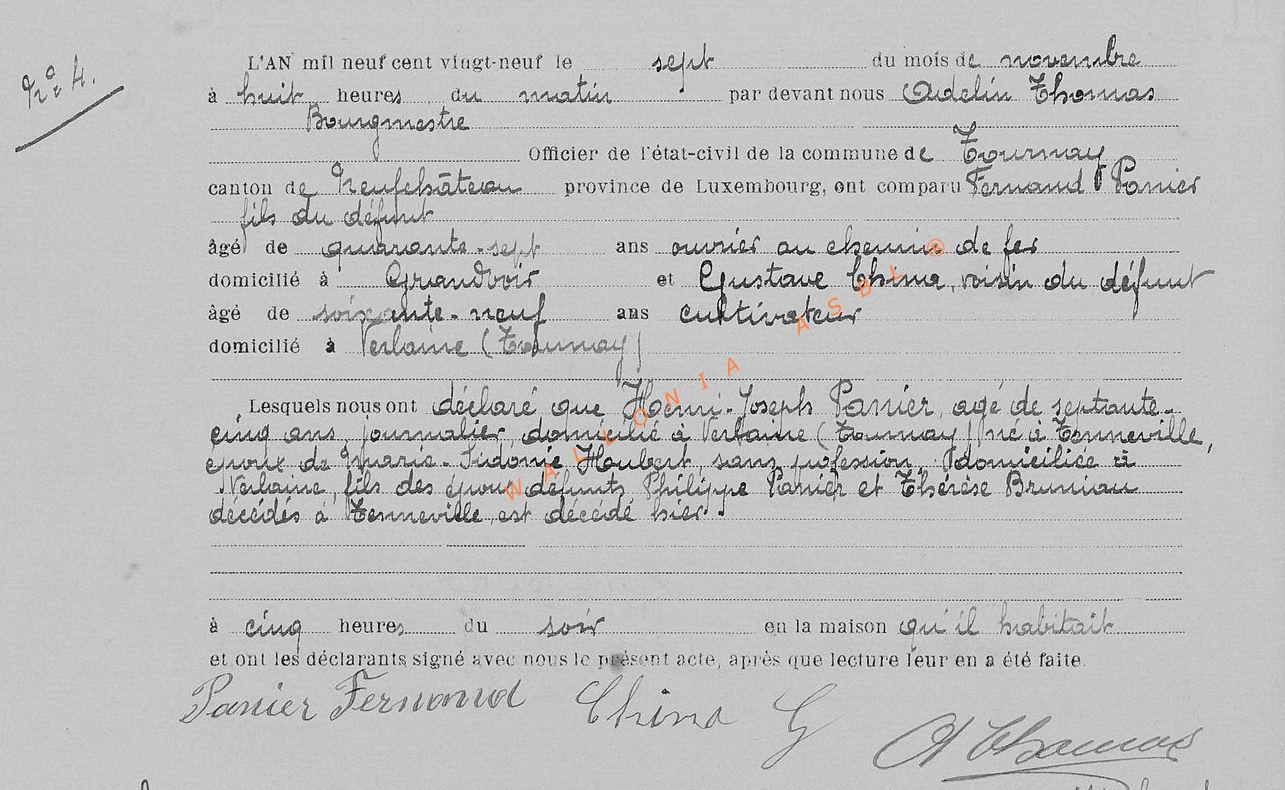 N° 4.
L'AN mil neuf cent vingt-neuf le sept du mois de novembre
à huit heures du matin par devant nous Adelin Thomas
Bourgmestre
Officier de l'état-civil de la commune de Tournay
canton de Neufchâteau province de Luxembourg, ont comparu Fernand Panier
fils du défunt
âgé de quarante-sept ans ouvrier au chemin de fer
domicilié à Grandvoir et Gustave China, voisin du défunt
âgé de soixante-neuf ans cultivateur
domicilié à Verlaine (Tournay)
Lesquels nous ont déclaré que Henri-Joseph Panier, agé de septante-
cinq ans, journalier, domicilié à Verlaine (Tournay) né à Tenneville,
époux de Marie-Sidonie Houbert, sans profession, domiciliée à
Verlaine, fils des époux défunts Philippe Panier et Thérèse Bruniau
décédés à Tenneville, est décédé hier.
à cinq heures du soir en la maison qu'il habitait
et ont les déclarants signé avec nous le présent acte, après que lecture leur en a été faite.
Panier Fernand China G A Thomas
WALLONIA ASBL ©